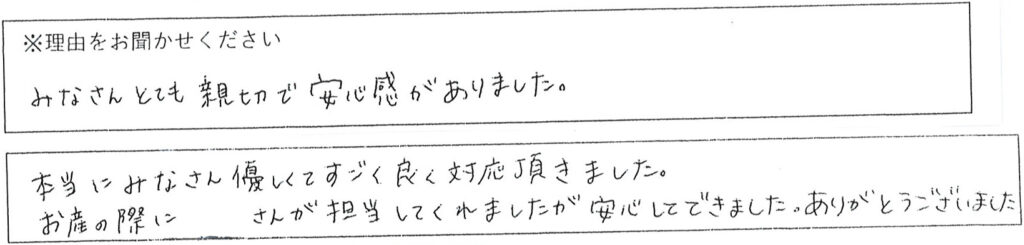 ※理由をお聞かせください
みなさんとても親切で安心感がありました。
本当にみなさん優しくてすごく良く対応頂きました。
お産の際に さんが担当してくれましたが安心してできました。ありがとうございました